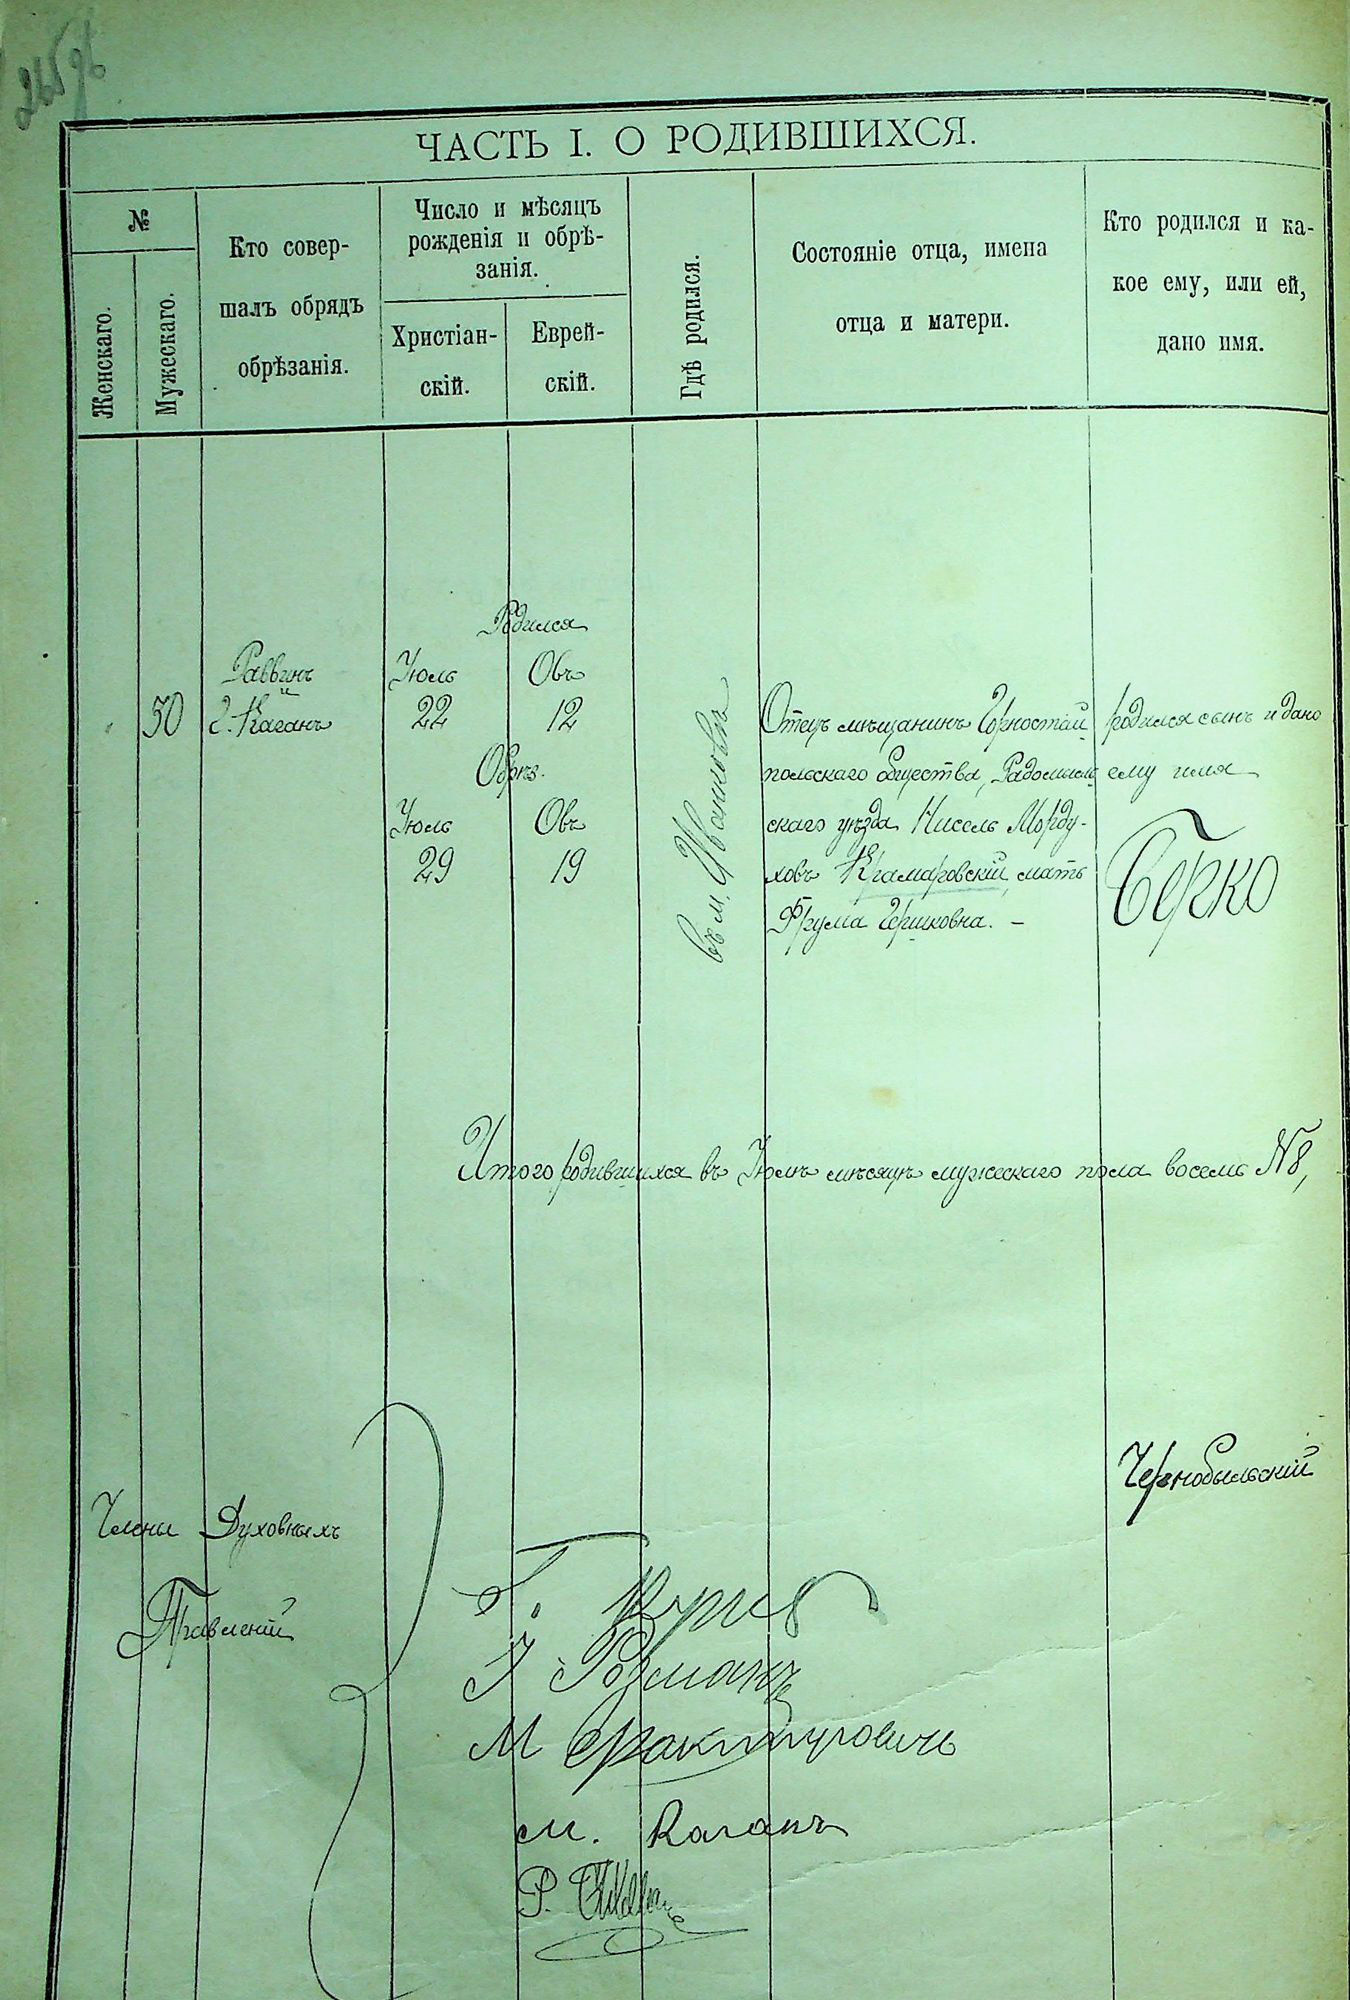 ЧАСТЬ I. О РОДИВШИХСЯ.
№
Женскаго.
Мужескаго.
Кто совер-
шалъ обрядъ
обрѣзанія.
Число и мѣсяцъ
рожденія и обрѣ-
занія.
Христіан-
скій.
Еврей-
скій.
Гдѣ родился.
Состояніе отца, имена
отца и матери.
Кто родился и ка-
кое ему, или ей,
дано имя.
50
Раввинъ
Каганъ
Родился
Іюль Овъ
22 12
Обрѣз.
Іюль Овъ
29 19
въ м. Ивановкѣ
Отецъ мѣщанинъ Горностай
польскаго общества, Радомысль
скаго уѣзда Нисель Морду-
ховъ Крамаровскій, мать
Фрума Гершковна. —
родился сынъ и дано
ему имя
Берко
Итого родившихся въ Іюлѣ мѣсяцѣ мужескаго пола восемь №8,
Чернобыльскій
Члены Духовныхъ
Правленій
І. Розманъ
М
м. Каганъ
Р.